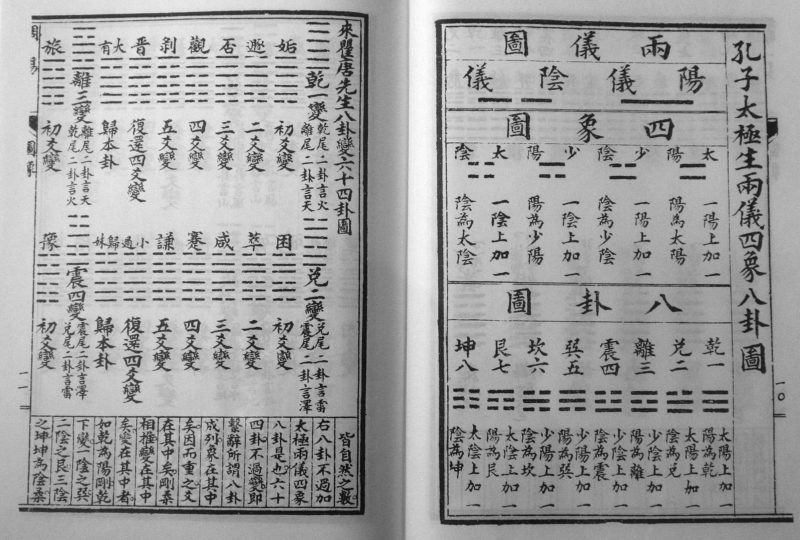 孔子太極生兩儀四象八卦圖
兩儀圖
陽儀 陰儀
四象圖
太陽 少陰 少陽 太陰
一陽上加一
陽為太陽
一陽上加一
陰為少陰
一陰上加一
陽為少陽
一陰上加一
陰為太陰
八卦圖
乾一 兌二 離三 震四 巽五 坎六 艮七 坤八
太陽上加一
陽為乾
太陽上加一
陰為兌
少陰上加一
陽為離
少陰上加一
陰為震
少陽上加一
陽為巽
少陽上加一
陰為坎
太陰上加一
陽為艮
太陰上加一
陰為坤
一〇
來瞿唐先生八卦變六十四卦圖
乾一變
乾尾二卦言火
離尾二卦言天
姤 初爻變
遯 二爻變
否 三爻變
觀 四爻變
剝 五爻變
晉 復還四爻變
大有 歸本卦
離三變
離尾二卦言天
乾尾二卦言火
旅 初爻變
兌二變
兌尾二卦言雷
震尾二卦言澤
困 初爻變
萃 二爻變
咸 三爻變
蹇 四爻變
謙 五爻變
小過 復還四爻變
歸妹 歸本卦
震四變
震尾二卦言澤
兌尾二卦言雷
豫 初爻變
皆自然之數
右八卦不過加
太極兩儀四象
八卦是也六十
四卦不過變即
繫辭所謂八卦
成列象在其中
矣因而重之爻
在其中矣剛柔
相推變在其中
矣變在其中者
如乾為陽剛乾
下變一陰之巽
二陰之艮三陰
之坤坤為陰柔
一一